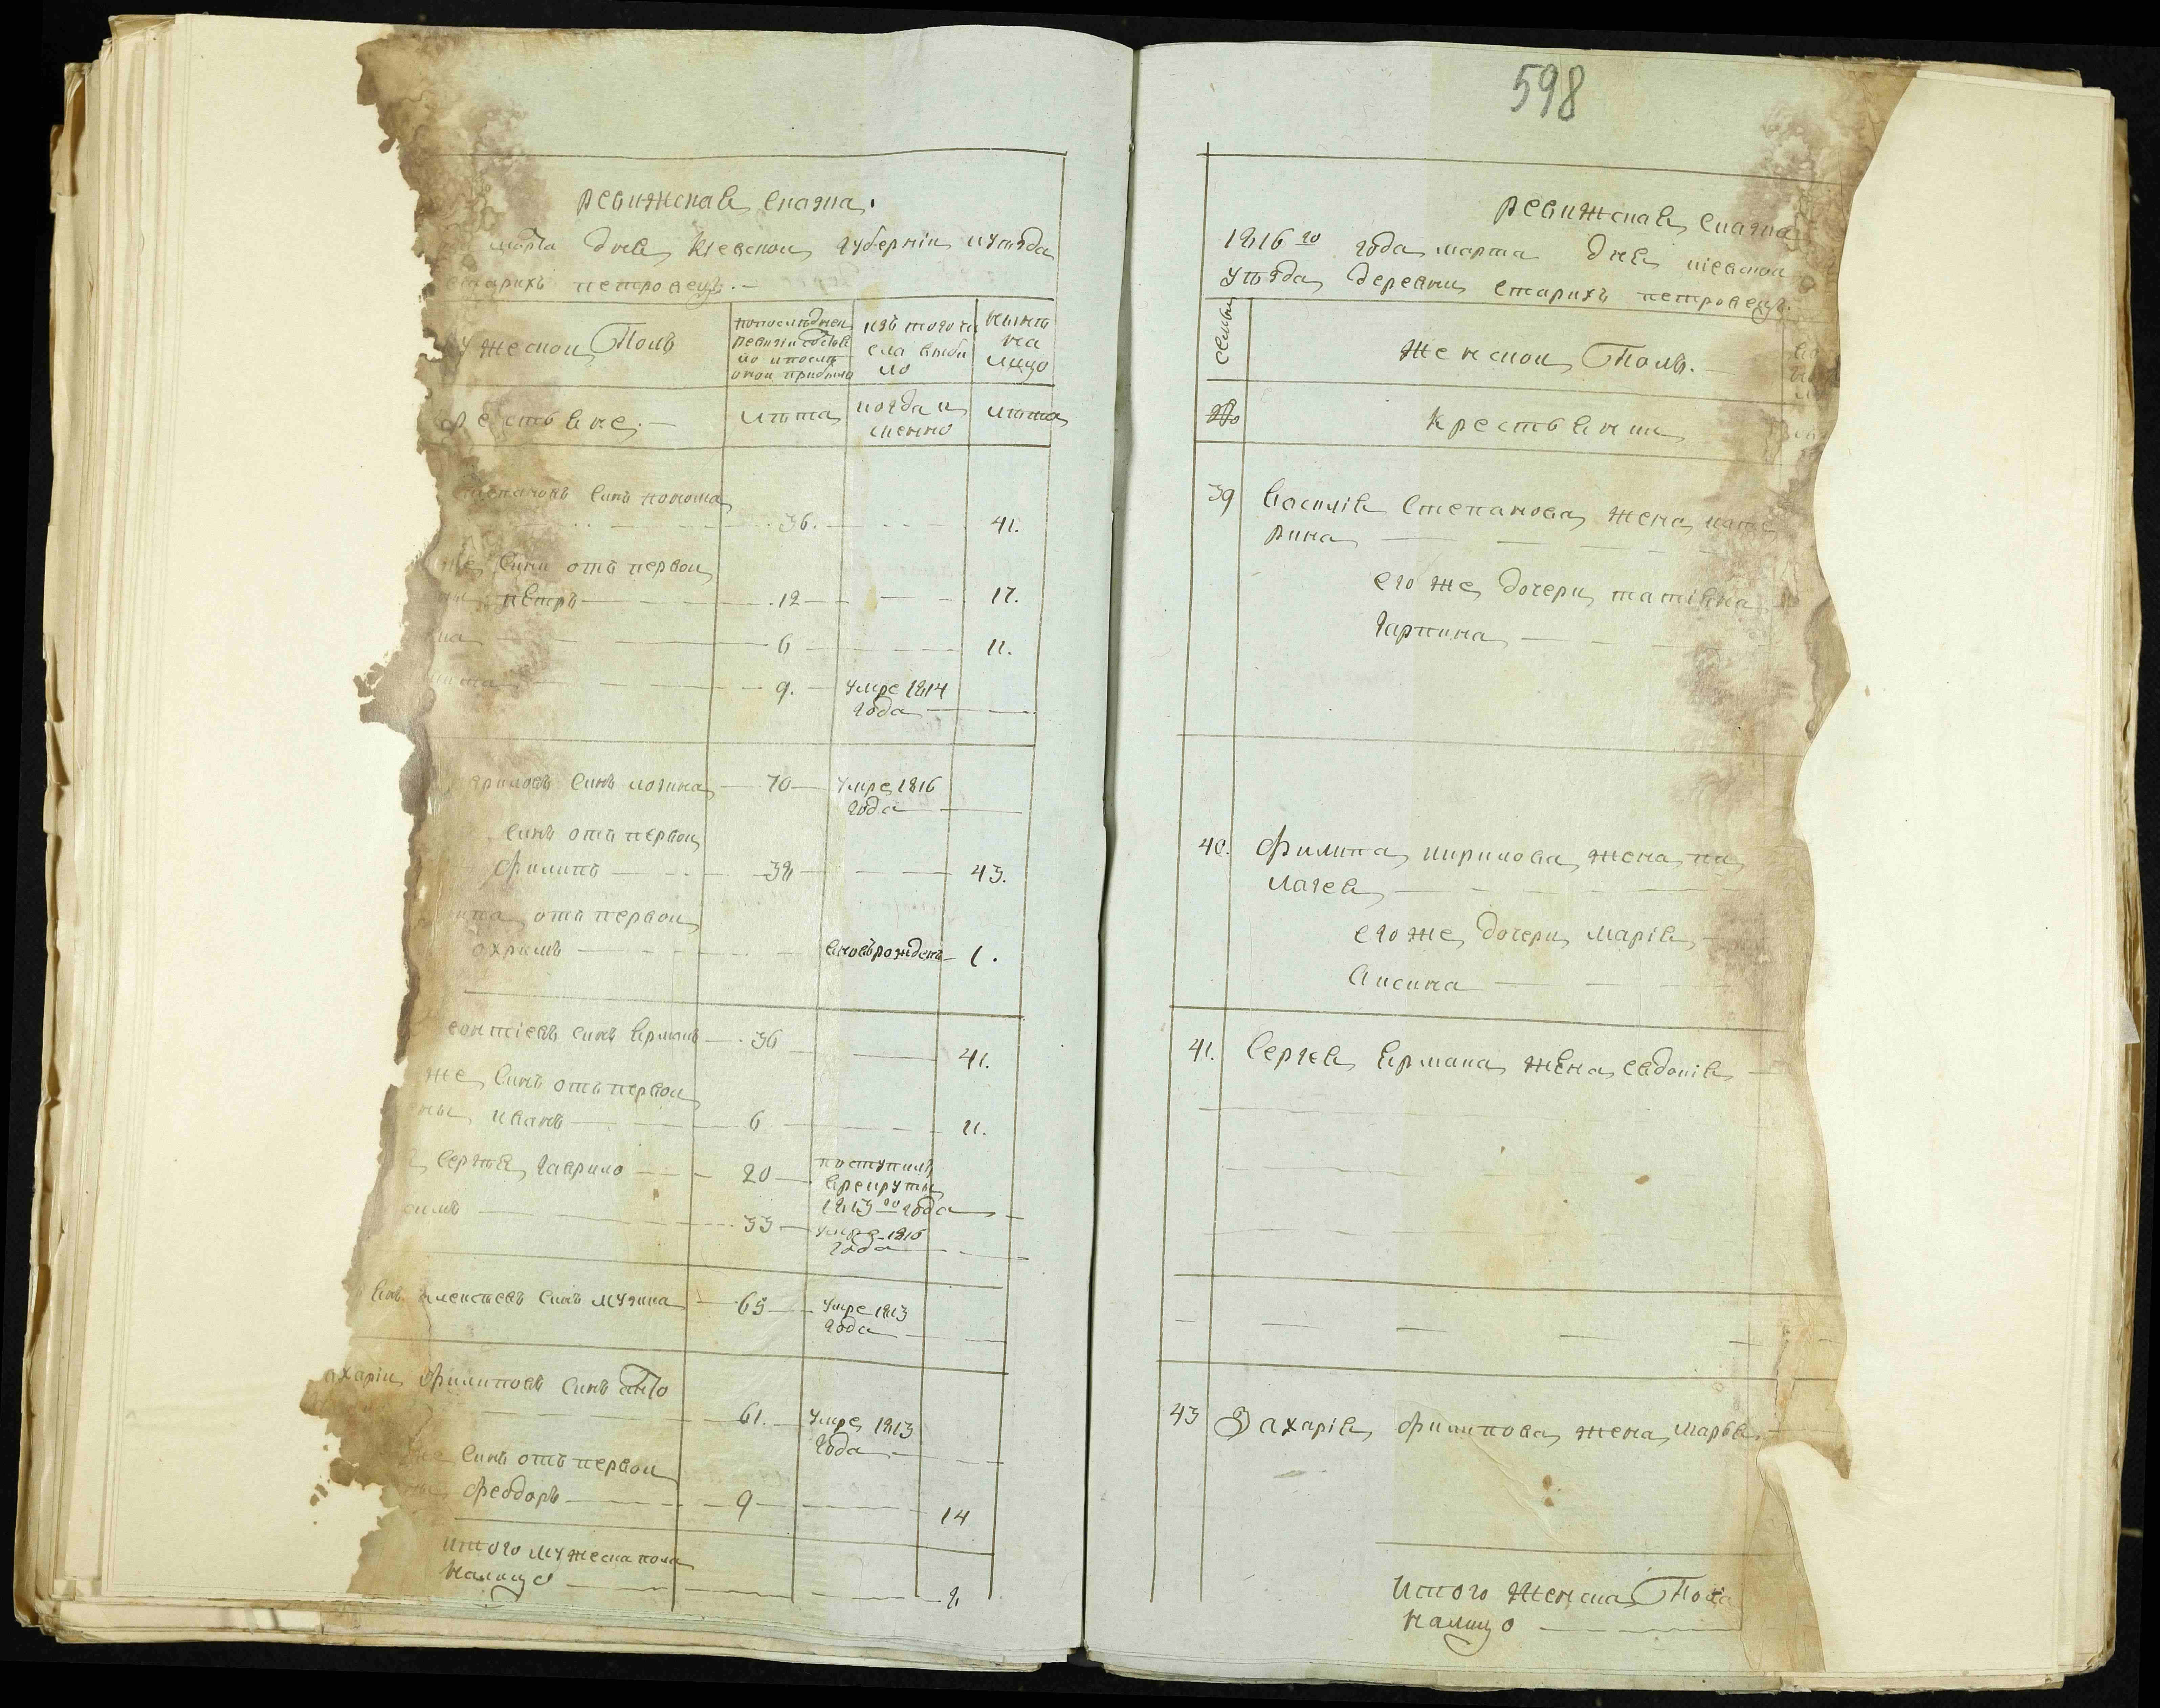 ревижская сказка.
марта дня Киевской губернии и уѣзда
старихъ петровецъ. —
мужескои Полъ
попослѣдней ревизіи состояло и послѣ оной прибыло
изъ того числа выбыло
нынѣ на лицо
крестьяне. —
лѣта
когда именно
лѣта
степановъ синъ
36. 41.
же сини отъ первои
петръ 12 17.
6 11.
9. умре 1814
года
кириловъ синъ логина 70 умре 1816
года
синъ отъ первои
филипъ 38 43.
отъ первои
охримъ вновьрожденъ 1.
леонтіевъ синъ ярмакъ 36 41.
же синъ отъ первои
жены иванъ 6 11.
сергѣя гаврило 20 поступилъ
врекруты
1813го года
33 умре 1816
года
алексѣевъ синъ музика 65 умре 1813
года
захаріи филиповъ синъ
61. умре 1813
года
же синъ отъ первои
жены феодоръ 9 14
итого мужеска пола
налицо 8
598
ревижская сказка
1816го года марта дня кіевской
уѣзда деревни старихъ петровецъ.
семьи
женскои Полъ. —
№
крестьянки
39 василія степанова жена кате
рина
его же дочери татіяна
гарпина
40. филипа кирилова жена па
лагея
его же дочери марія
аксина
41. сергея ярмака жена евдокія
43 Захарія филипова жена марья
итого женска Пола
налицо